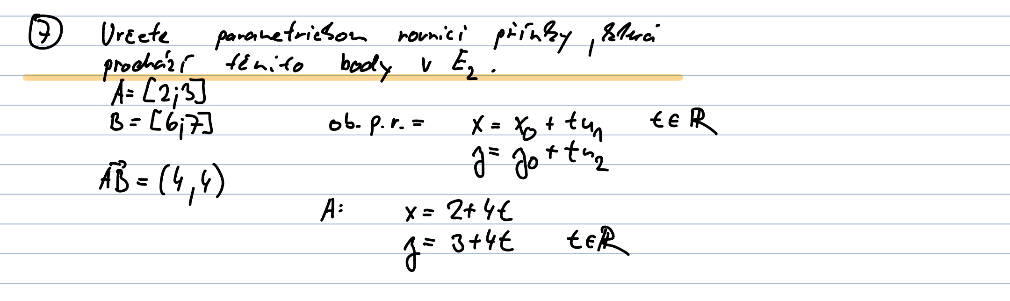 ⑦ Určete parametrickou rovnici přímky, která
prochází těmito body v E₂.
A = [2;3]
B = [6;7] ob. p. r. = x = x₀ + tu₁ t∈ℝ
y = y₀ + tu₂
AB⃗ = (4,4)
A: x = 2+4t
y = 3+4t t∈ℝ